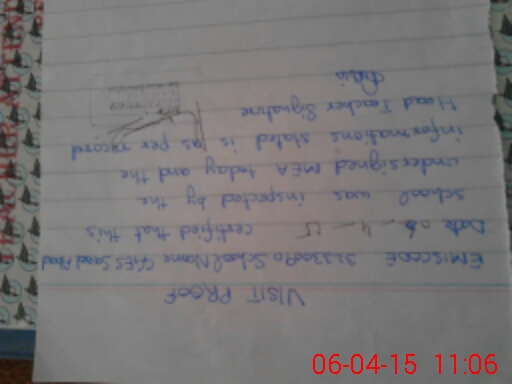 VISIT PROOF
EMISCODE 32330090 School Name GES
Date 06-4-15 certified that this
school was inspected by the
undersigned MEA today and the
informations stated is as per record
Head Teacher Signature
06-04-15 11:06